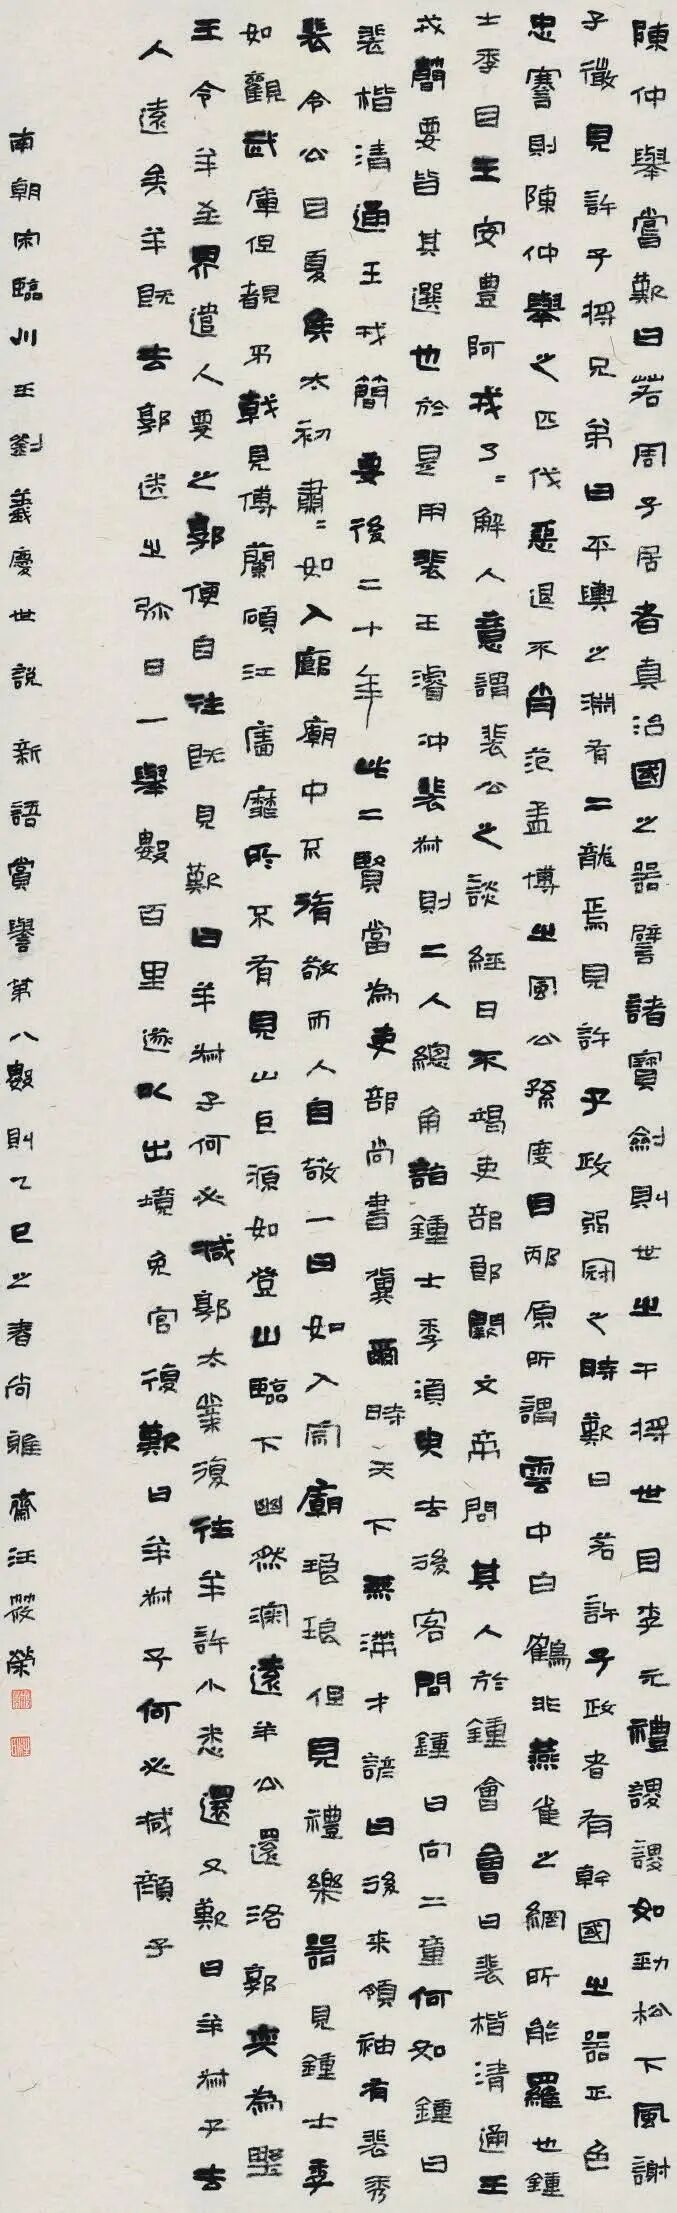 陳仲舉嘗歎曰若周子居者真治國之器譬諸寶劍則世之干將世目李元禮謖謖如勁松下風謝
子微見許子將兄弟曰平輿之淵有二龍焉見許子政弱冠之時歎曰若許子政者有幹國之器正色
忠謇則陳仲舉之匹伐惡退不肖范孟博之風公孫度目邴原所謂雲中白鶴非燕雀之網所能羅也鍾
士季目王安豐阿戎了=解人意謂裴公之談經日不竭吏部郎闕文帝問其人於鍾會會曰裴楷清通王
戎簡要皆其選也於是用裴王濬沖裴叔則二人總角詣鍾士季須臾去後客問鍾曰向二童何如鍾曰
裴楷清通王戎簡要後二十年此二賢當為吏部尚書冀爾時天下無滯才諺曰後來領袖有裴秀
裴令公目夏侯太初肅=如入廊廟中不脩敬而人自敬一曰如入宗廟琅琅但見禮樂器見鍾士季
如觀武庫但覩矛戟見傅蘭碩江廧靡所不有見山巨源如登山臨下幽然深遠羊公還洛郭奕為野
王令羊至界遣人要之郭便自往既見歎曰羊叔子何必減郭太業復往羊許小悉還又歎曰羊叔子去
人遠矣羊既去郭送之彌日一舉數百里遂以出境免官復歎曰羊叔子何必減顏子
南朝宋臨川王劉義慶世說新語賞譽第八數則乙巳之春尚雅齋汪筱榮